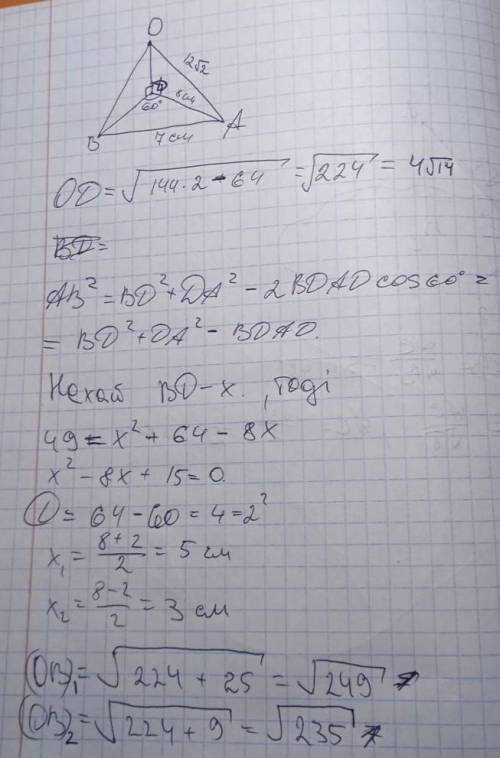 O
12√2
8см
60°
B
7см
A
OD = √(144·2 - 64) = √224 = 4√14
AB² = BD² + DA² - 2BDAD cos60° =
= BD² + DA² - BDAD.
Нехай BD - x. , тоді
49 = x² + 64 - 8x
x² - 8x + 15 = 0
D = 64 - 60 = 4 = 2²
x₁ = (8+2)/2 = 5 см
x₂ = (8-2)/2 = 3 см
(OB)₁ = √(224 + 25) = √249
(OB)₂ = √(224 + 9) = √235